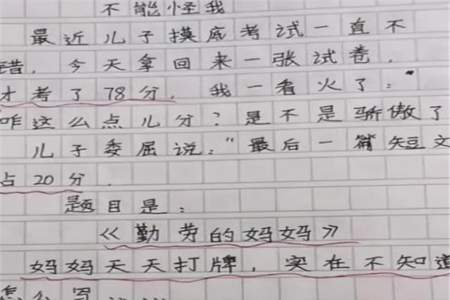 不能怪我
最近儿子摸底考试一直不
错，今天拿回来一张试卷，
才考了78分，我一看火了："
咋这么点儿分？是不是骄傲了
儿子委屈说："最后一篇短文
占20分．
题目是：
《勤劳的妈妈》
妈妈天天打牌，实在不知道
怎么写……